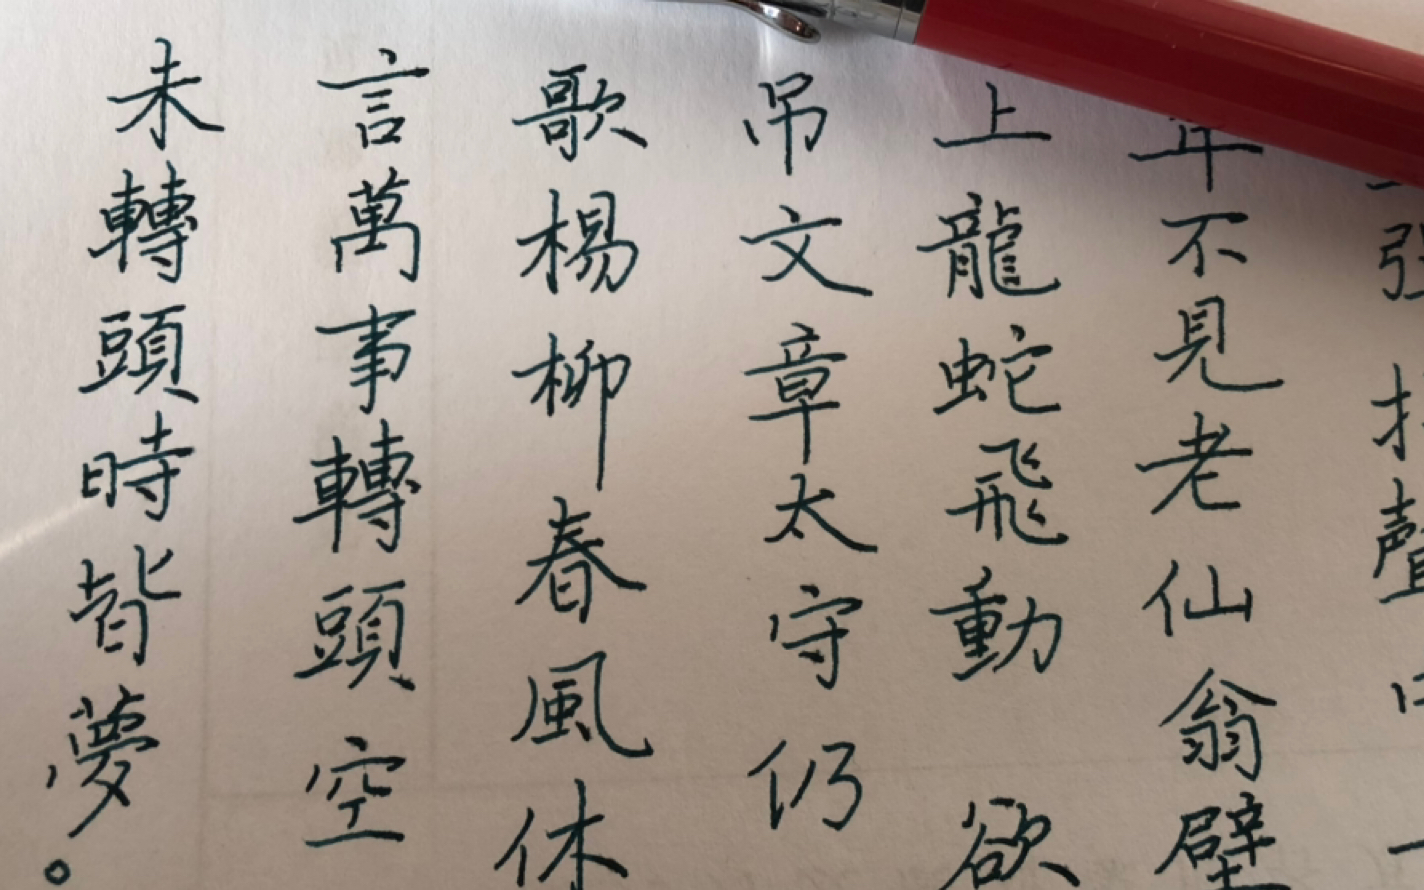 聲
年不見老仙翁壁
上龍蛇飛動欲
吊文章太守仍
歌楊柳春風休
言萬事轉頭空
未轉頭時皆夢。